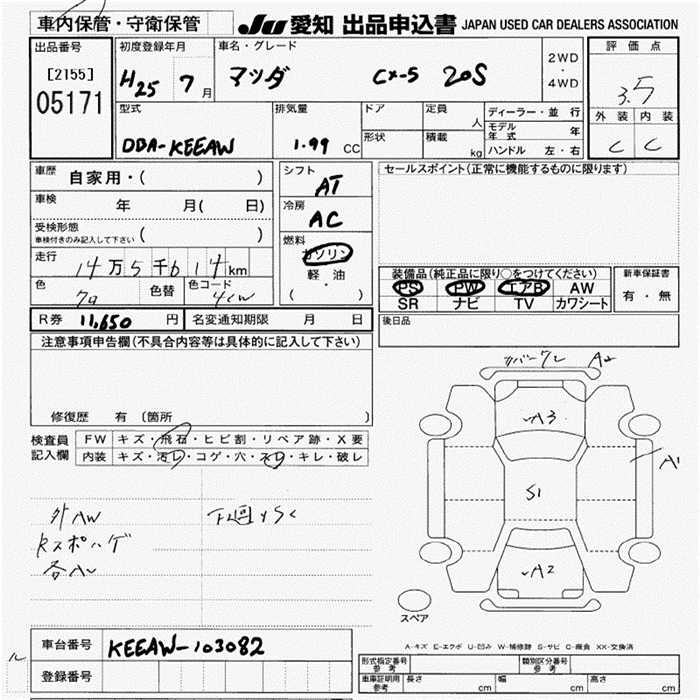 車内保管・守衛保管
JU 愛知 出品申込書 JAPAN USED CAR DEALERS ASSOCIATION
出品番号
[2155]
05171
初度登録年月
H25 7月
車名・グレード
マツダ CX-5 20S
2WD
・
4WD
評価点
3.5
外装 内装
C C
型式
DBA-KEEAW
排気量
1.99 CC
ドア
定員
人
形状
積載
kg
ディーラー・並行
モデル年式 年
ハンドル 左・右
車歴
自家用・( )
車検
年 月( 日)
受検形態
車検付きのみ記入して下さい ( )
走行
14万5千614km
色
色替
色コード
R券 11,650 円
名変通知期限 月 日
シフト
AT
冷房
AC
燃料
ガソリン
軽・油
( ・ )
セールスポイント(正常に機能するものに限ります)
装備品(純正品に限り○をつけてください)
PS PW エアB AW
SR ナビ TV カワシート
新車保証書
有・無
後日品
注意事項申告欄(不具合内容等は具体的に記入して下さい)
修復歴 有 〔箇所 〕
検査員
記入欄
FW キズ・飛石・ヒビ割・リペア跡・X要
内装 キズ・汚レ・コゲ・穴・スレ・キレ・破レ
外AW
下廻
A2
A3
A1
S1
A2
スペア
A-キズ E-エクボ U-凹み W-補修跡 S-サビ C-腐食 XX-交換済
車台番号 KEEAW-103082
登録番号
型式指定番号
参考
類別区分番号
参考
車庫証明用
参考
長さ cm
幅 cm
高さ cm